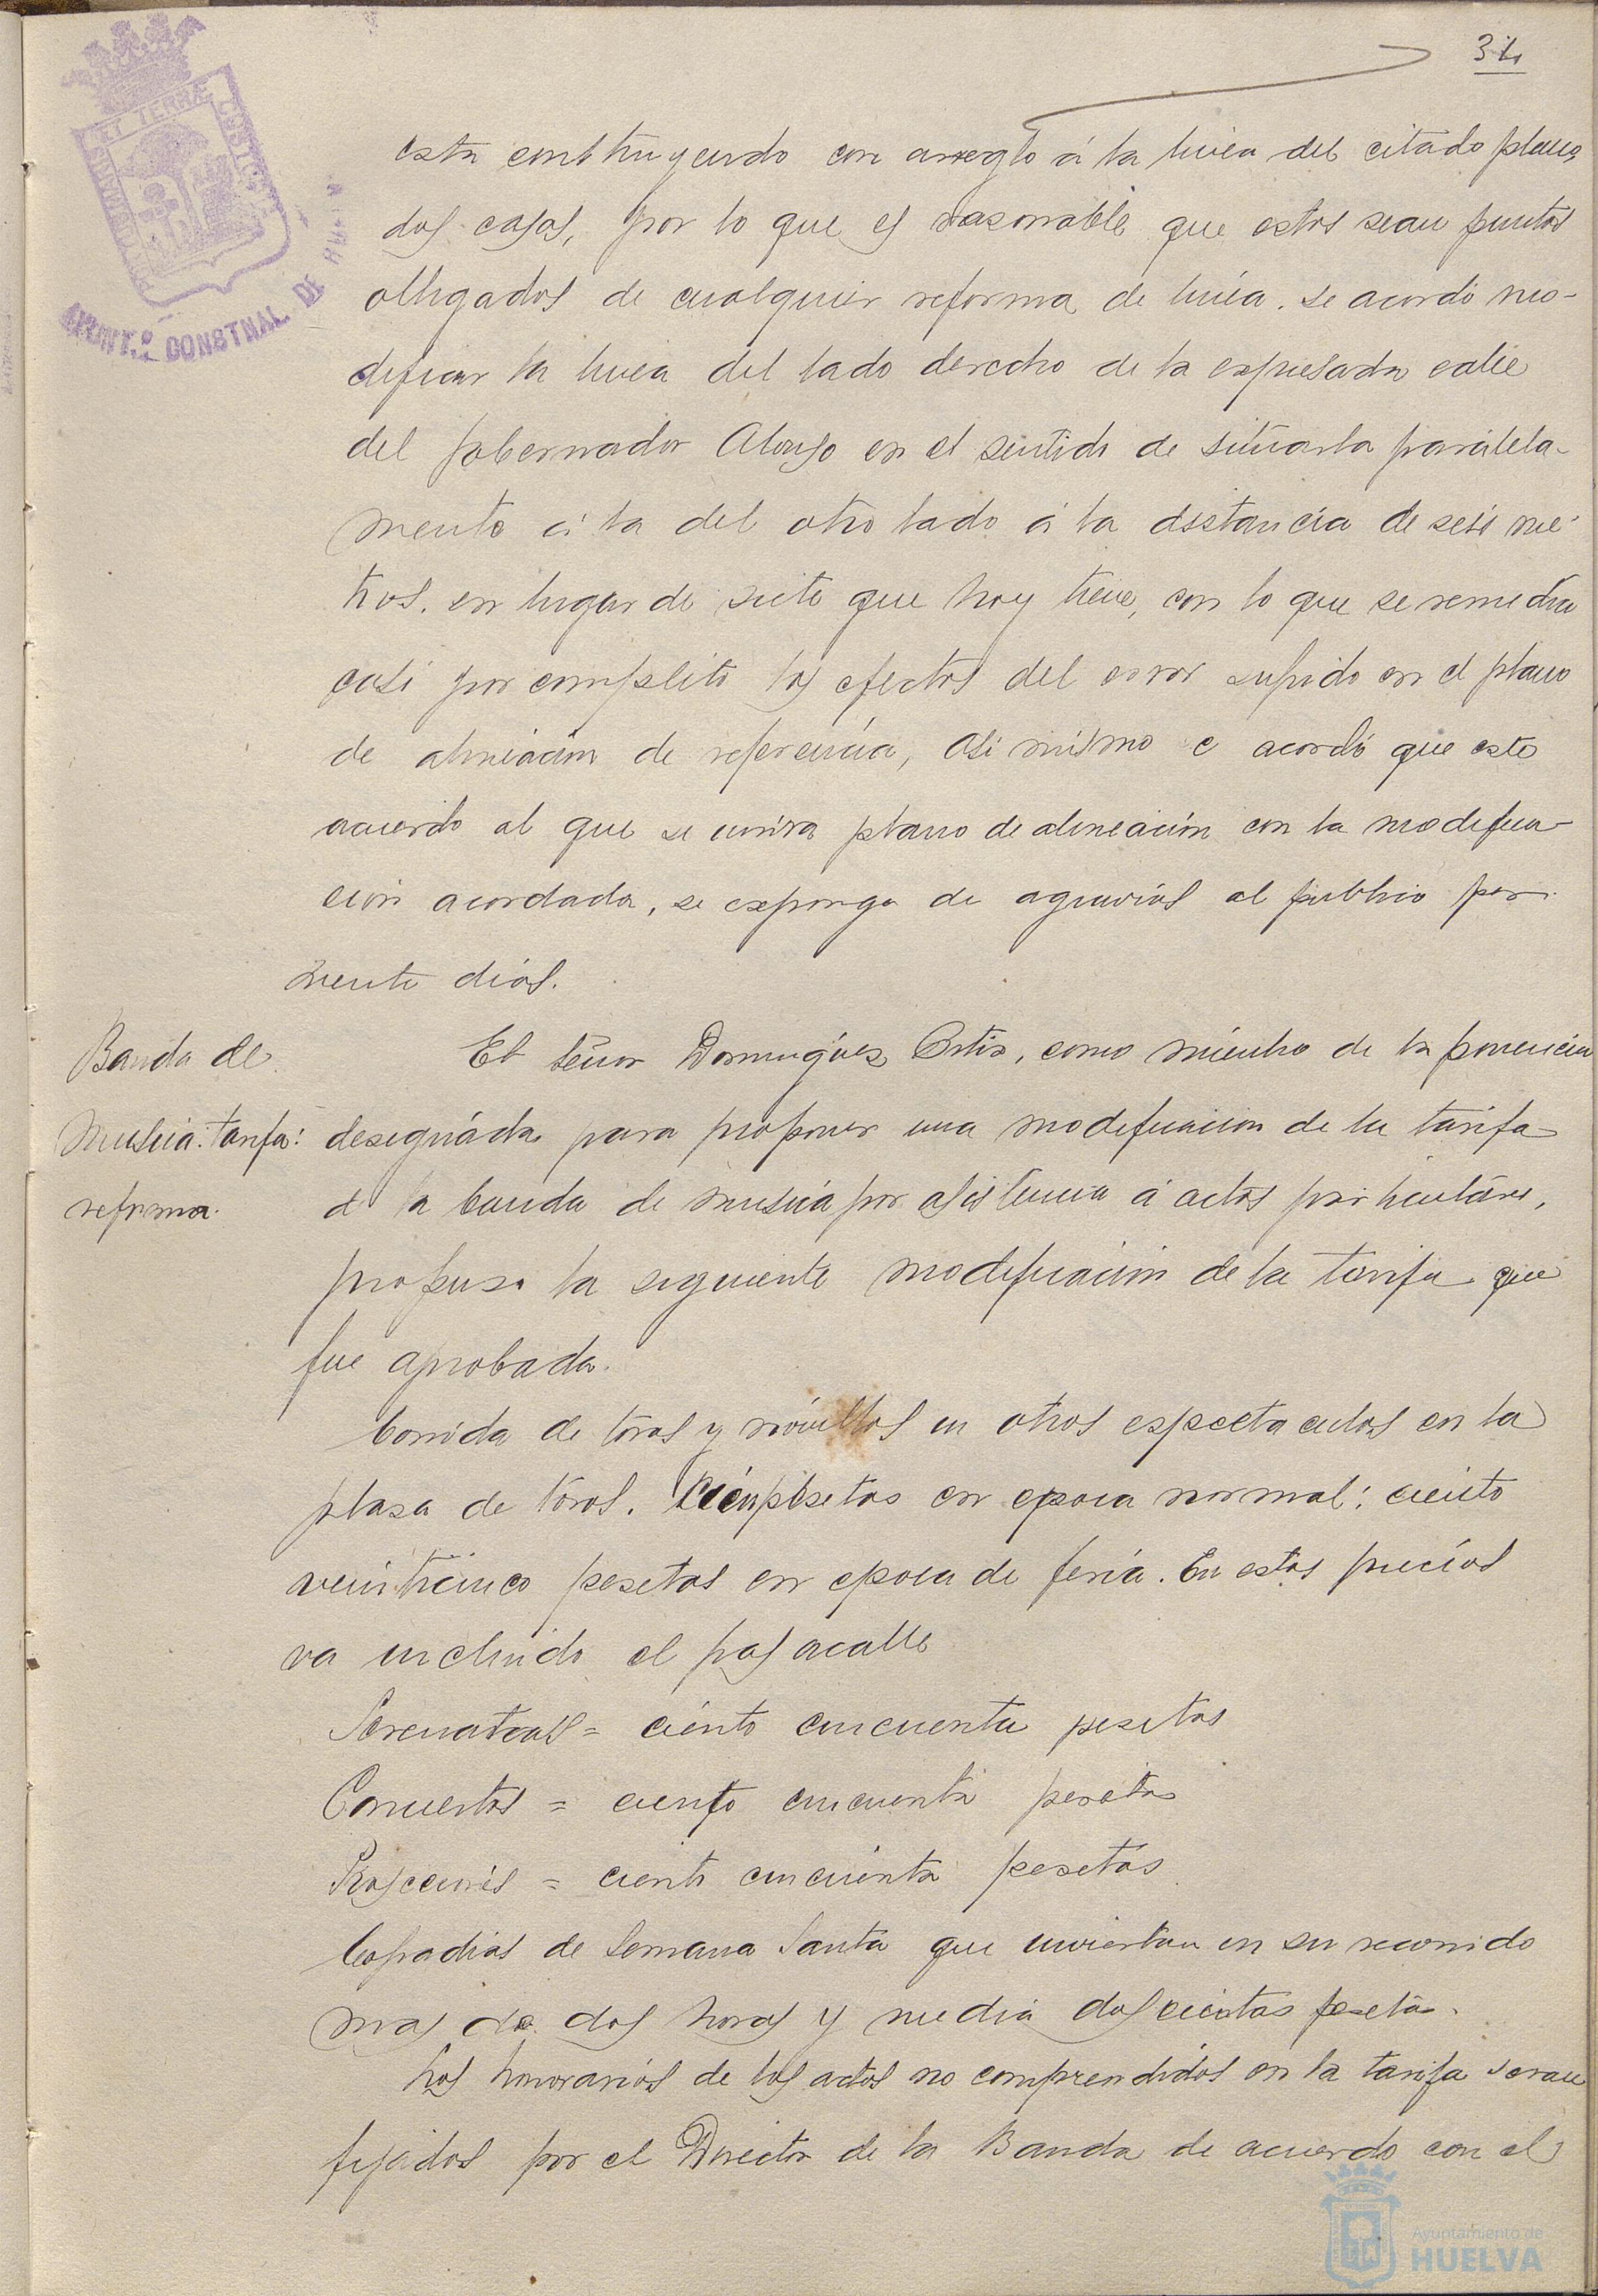 34
esta construyendo con arreglo á la linea del citado plano
dos casas, por lo que es rasonable que estos sean puntos
obligados de cualquier reforma de linéa. se acordó mo-
dificar la linea del lado derecho de la expresada calle
del gobernador Alonso en el sentido de situarla paralela-
mente á la del otro lado á la distancia de seis me-
tros. en lugar de siete que hoy tiene, con lo que se remedia
casi por completo los efectos del error sufrido en el plano
de alineación de referencia, asi mismo e acordó que este
acuerdo al que se unira plano de alineación con la modifica-
cion acordada, se exponga de agravios al publico por
veinte dias.
Banda de
Musica. tarifa:
reforma.
El señor Dominguez Ortiz, como miembro de la ponencia
designada para proponer una modificacion de la tarifa
d la banda de musica por asistencia á actos particulares,
propuso la siguiente modificacion de la tarifa que
fue aprobada.
Corrida de toros y novillos u otros espectaculos en la
plasa de toros. Cien pesetas en epoca normal: ciento
veinticinco pesetas en epoca de feria. En estos precios
va incluido el pasacalle
Serenatas = ciento cincuenta pesetas
Conciertos = ciento cincuenta pesetas
Procesiones = ciento cincuenta pesetas
Cofradias de Semana Santa que inviertan en su recorrido
mas de dos horas y media doscientas pesetas.
Los honorarios de los actos no comprendidos en la tarifa seran
fijados por el Director de la Banda de acuerdo con el
AYUNT.º CONSTNAL DE
Ayuntamiento de
HUELVA